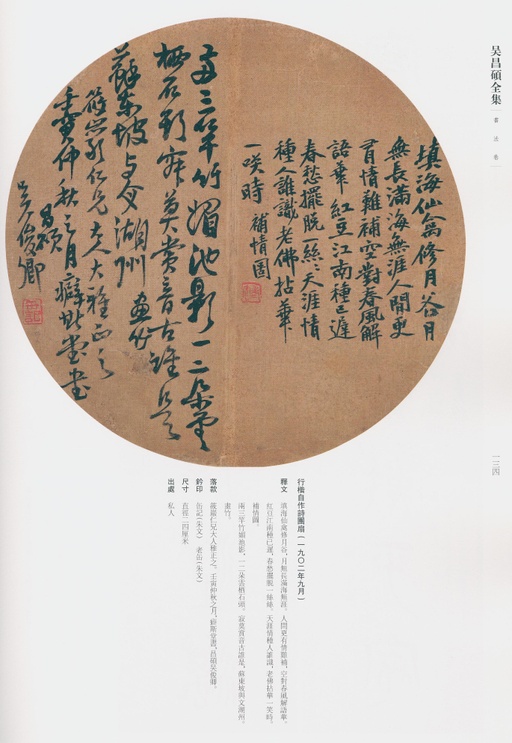 吴昌碩全集
書法卷
填海仙禽修月斧月
無長滿海無涯人間更
有情難補空對春風解
語華 紅豆江南種已遲
春愁擺脫一絲絲天涯情
種人誰識老佛拈華
一咲時 補情圖
兩三竿竹媚池影一二朵雲
栖石頭寂莫賞音古誰是
蘇東坡與文湖州 畫竹
仁兄大人大雅正之
壬寅仲秋之月癖斯堂書
昌碩
吳俊卿
一三四
行楷自作詩團扇(一九〇二年九月)
釋文 填海仙禽修月斧，月無長滿海無涯。人間更有情難補，空對春風解語華。
紅豆江南種已遲，春愁擺脫一絲絲。天涯情種人誰識，老佛拈華一笑時。
補情圖。
兩三竿竹媚池影，一二朵雲栖石頭。寂莫賞音古誰是，蘇東坡與文湖州。
畫竹。
落款 仁兄大人雅正之。壬寅仲秋之月，癖斯堂書，昌碩吳俊卿。
鈐印 缶記(朱文) 老缶(朱文)
尺寸 直徑二四厘米
出處 私人